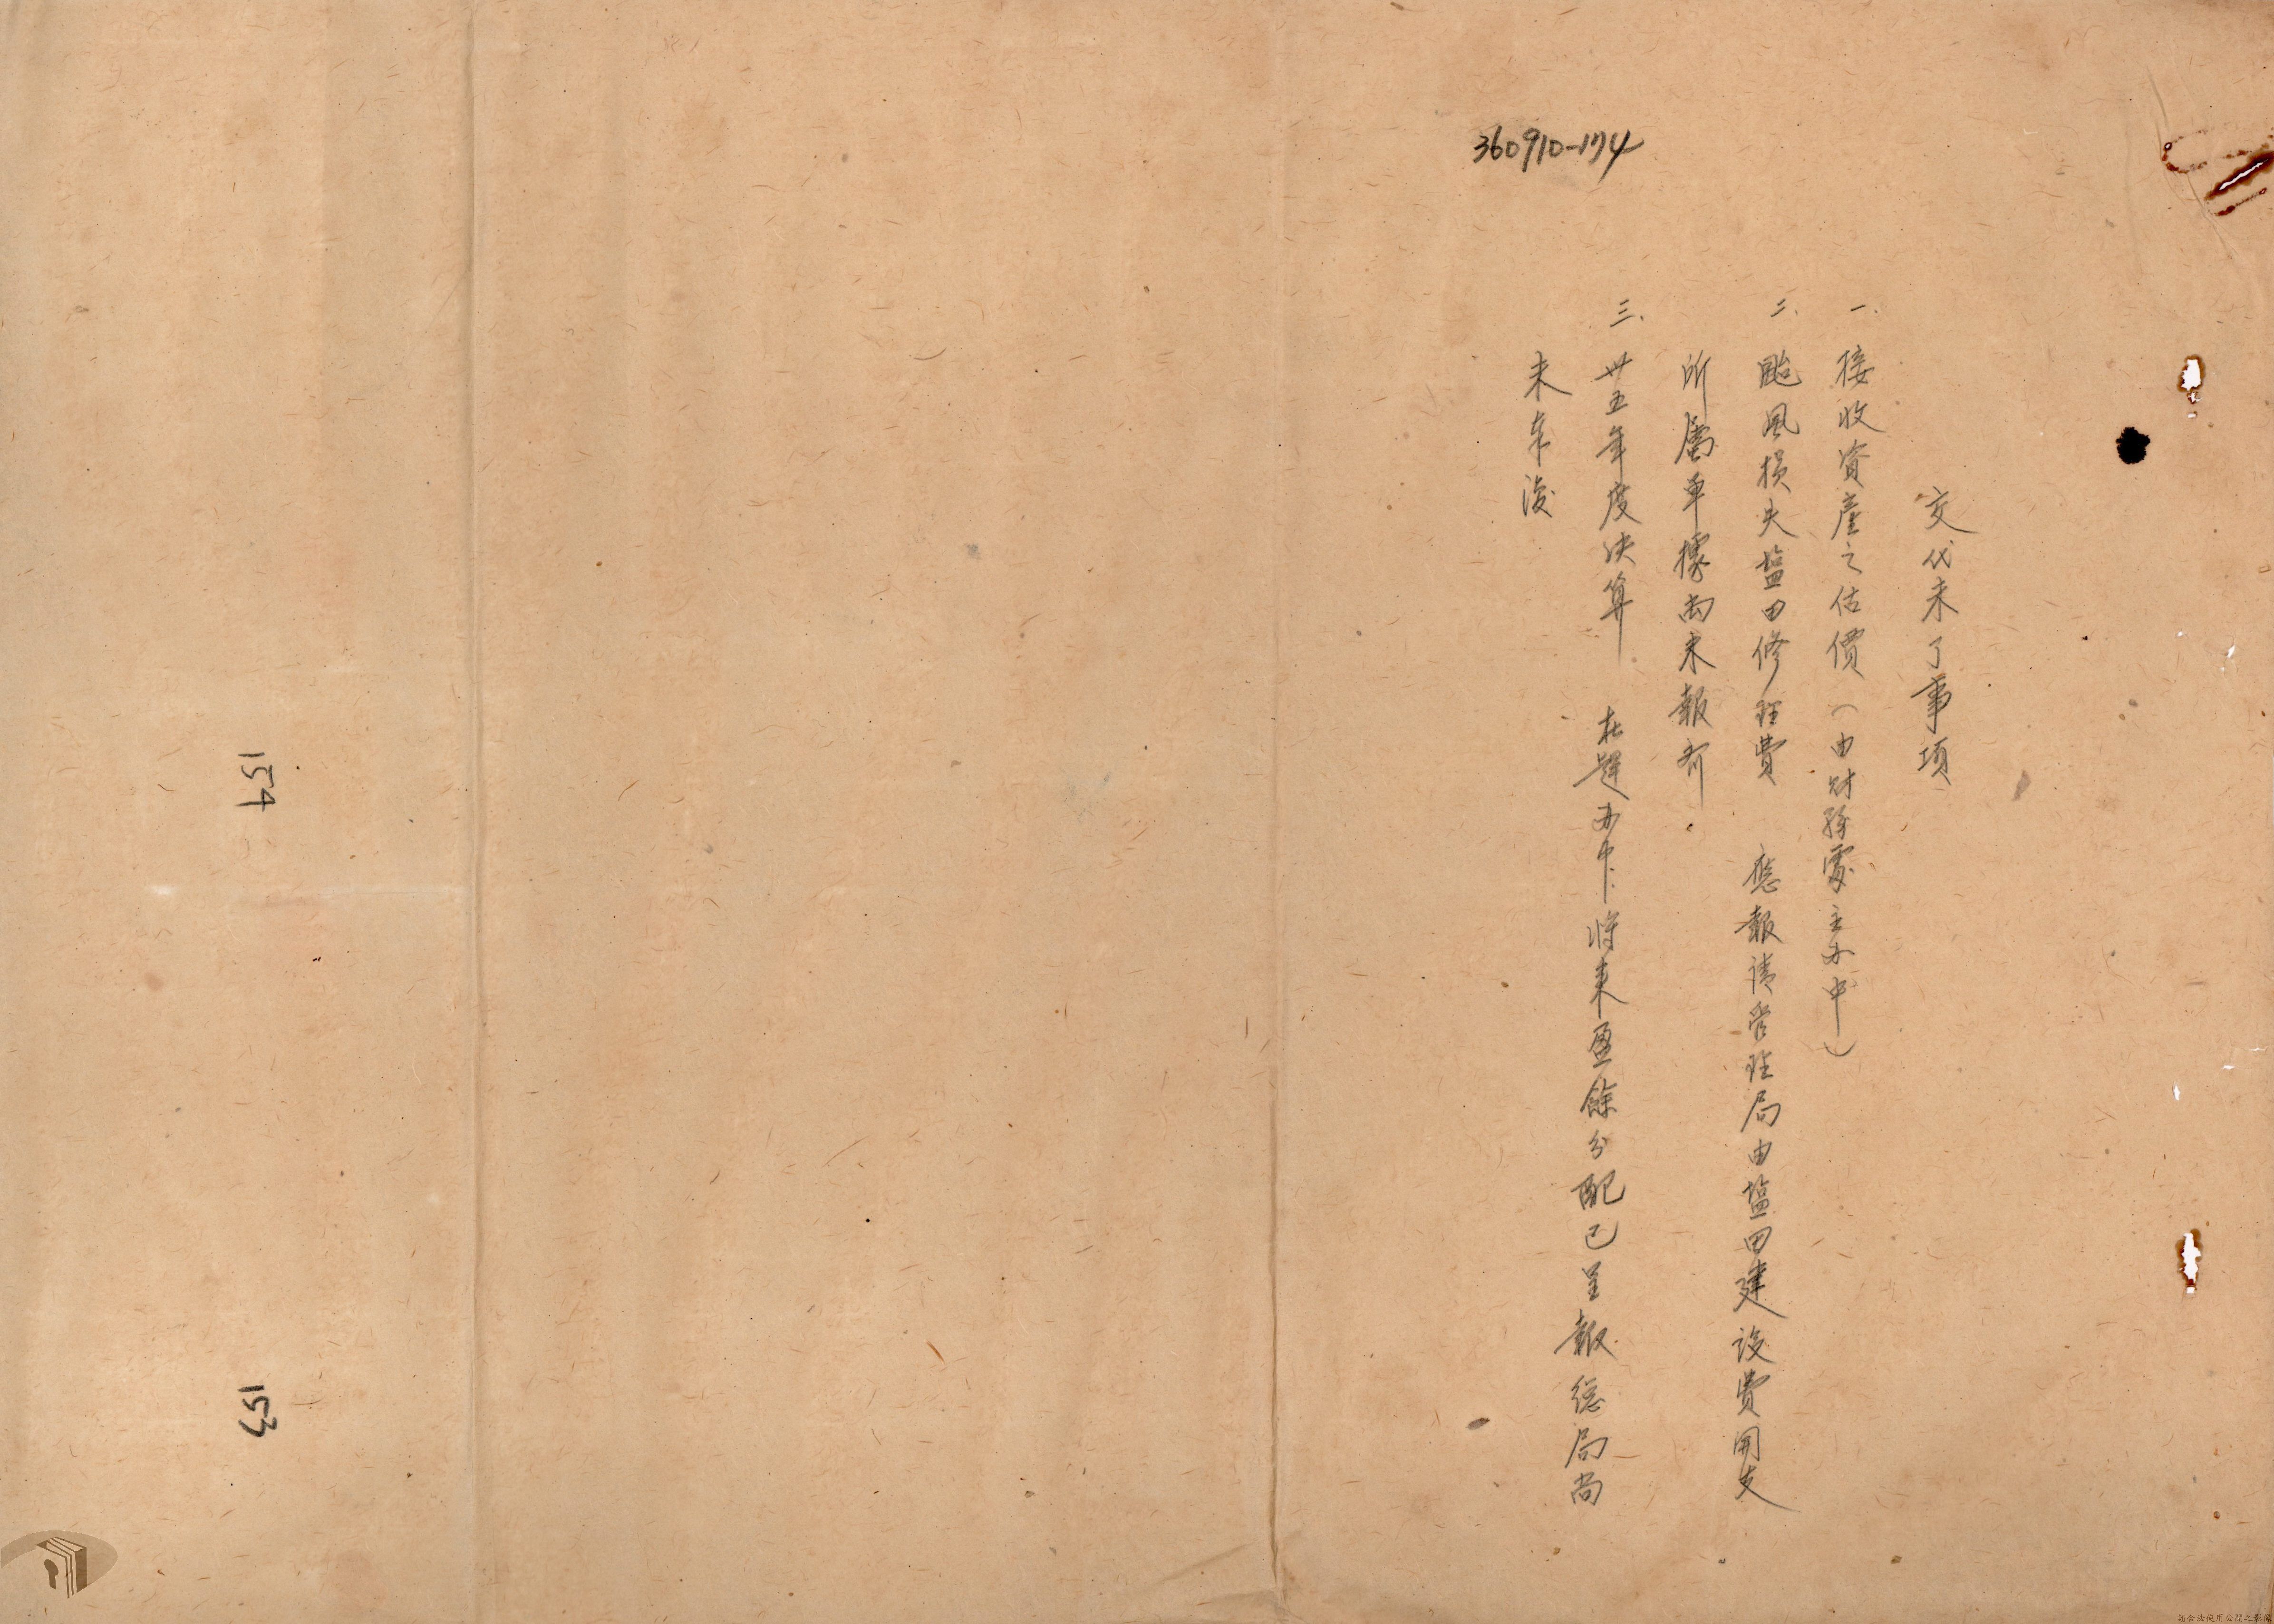 360910-174
交代未了事項
一、接收資產之估價（由財務處主办中）
二、颱風損失塩田修理費 應報請管理局由塩田建設費開支
所屬單據尚未報齐
三、卅五年度決算 在趕办中將來盈餘分配已呈報總局尚
未奉復
154
153
請合法使用公開之影像